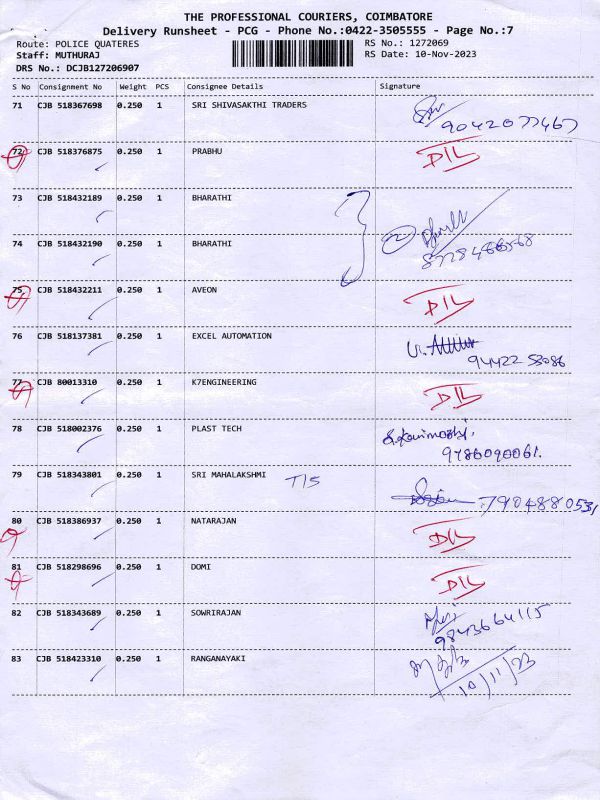 THE PROFESSIONAL COURIERS, COIMBATORE
Delivery Runsheet - PCG - Phone No.:0422-3505555 - Page No.:7
Route: POLICE QUATERES RS No.: 1272069
Staff: MUTHURAJ RS Date: 10-Nov-2023
DRS No.: DCJB127206907
S No Consignment No Weight PCS Consignee Details Signature
71 CJB 518367698 0.250 1 SRI SHIVASAKTHI TRADERS
9042077467
72 CJB 518376875 0.250 1 PRABHU D/L
73 CJB 518432189 0.250 1 BHARATHI
74 CJB 518432190 0.250 1 BHARATHI 2
75 CJB 518432211 0.250 1 AVEON D/L
76 CJB 518137381 0.250 1 EXCEL AUTOMATION
94422 58086
77 CJB 80013310 0.250 1 K7ENGINEERING D/L
78 CJB 518002376 0.250 1 PLAST TECH
9786090061.
79 CJB 518343801 0.250 1 SRI MAHALAKSHMI T/S
7904880531
80 CJB 518386937 0.250 1 NATARAJAN D/L
81 CJB 518298696 0.250 1 DOMI D/L
82 CJB 518343689 0.250 1 SOWRIRAJAN
9843664115
83 CJB 518423310 0.250 1 RANGANAYAKI
10/11/23